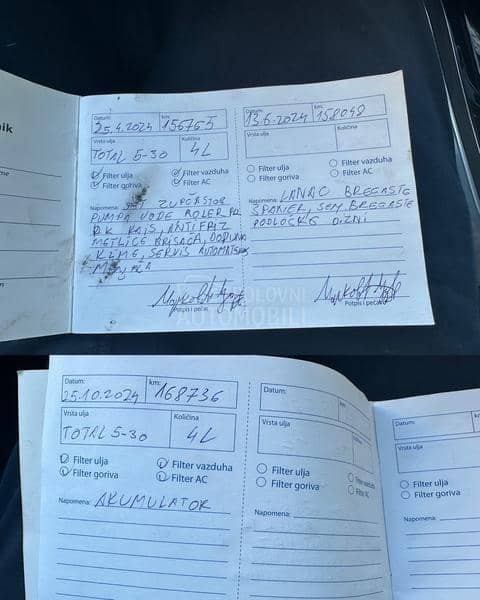 Datum: 25.4.2024 km: 156765
Vrsta ulja Količina
TOTAL 5-30 4L
Filter ulja Filter vazduha
Filter goriva Filter AC
Napomena: SET ZUPČASTOG
PUMPA VODE ROLER PO.
P.K KAIS, ANTIFRIZ
METLICE BRISAČA, DOPUNA
KLIME, SERVIS AUTOMATSKOG
MENJAČA
Potpis i pečat
Datum: 13.6.2024 km: 158048
Vrsta ulja Količina
Filter ulja Filter vazduha
Filter goriva Filter AC
Napomena: LANAC BREGASTE
ŠPANER, SEM BREGASTE
PODLOČKE DIZNI
Potpis i pečat
POLOVNI
AUTOMOBILI
Datum: 25.10.2024 km: 168736
Vrsta ulja Količina
TOTAL 5-30 4L
Filter ulja Filter vazduha
Filter goriva Filter AC
Napomena: AKUMULATOR
Datum: km:
Vrsta ulja Količina
Filter ulja Filter vazduha
Filter goriva Filter AC
Napomena:
Datum:
Vrsta ulja
Filter ulja
Filter goriva
Napomena: